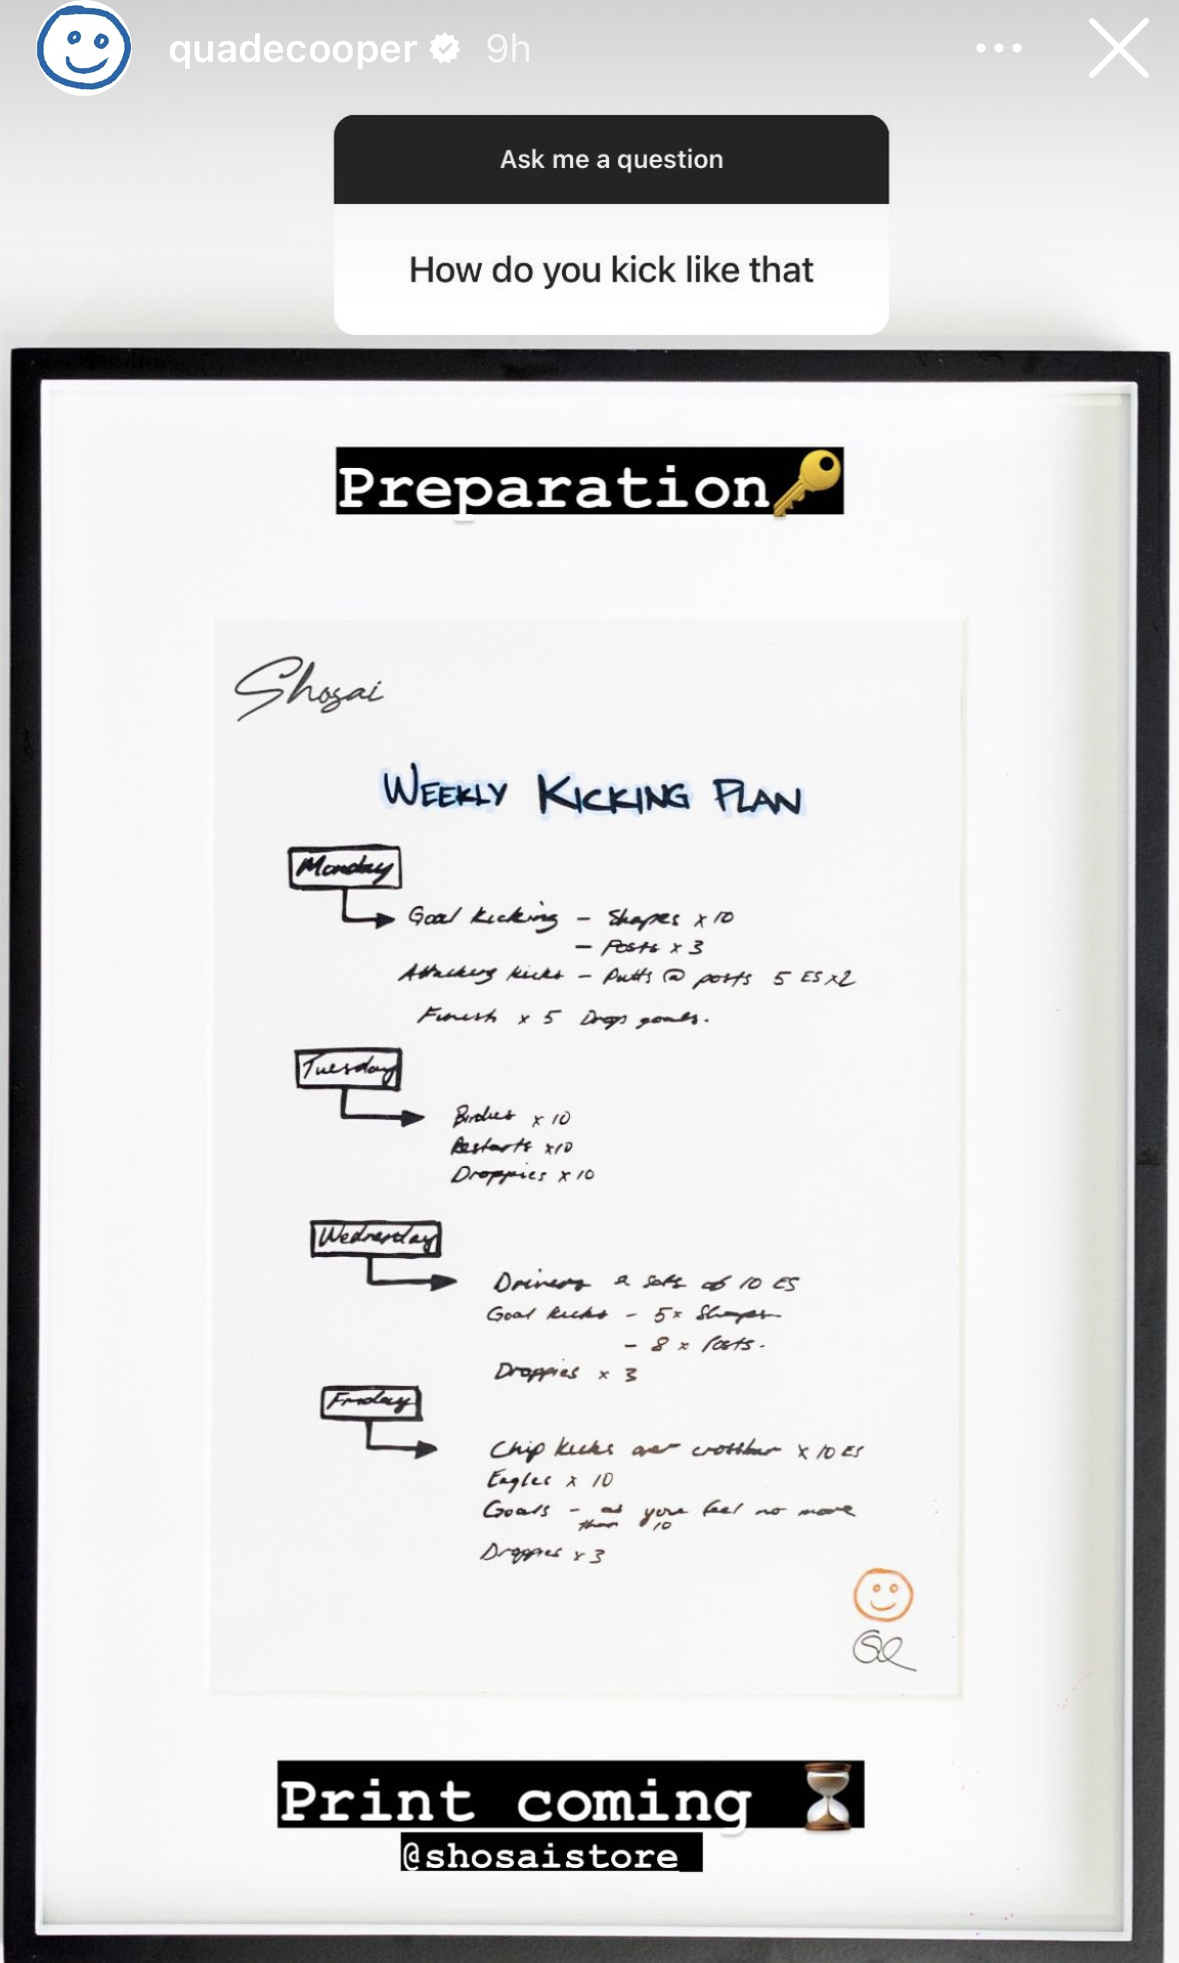 quadecooper 9h
Ask me a question
How do you kick like that
Preparation🔑
Shosai
WEEKLY KICKING PLAN
Monday
Goal kicking - Shapes x 10
- Posts x 3
Attacking kicks - Putts @ posts 5 ES x2
Finish x 5 Drop goals.
Tuesday
Birdies x 10
Restarts x10
Droppies x 10
Wednesday
Drivers 2 sets of 10 ES
Goal kicks - 5x Shapes
- 8 x Posts.
Droppies x 3
Friday
Chip kicks over crossbar x 10 ES
Eagles x 10
Goals - as you feel no more
than 10
Droppies x 3
Print coming ⏳
@shosaistore